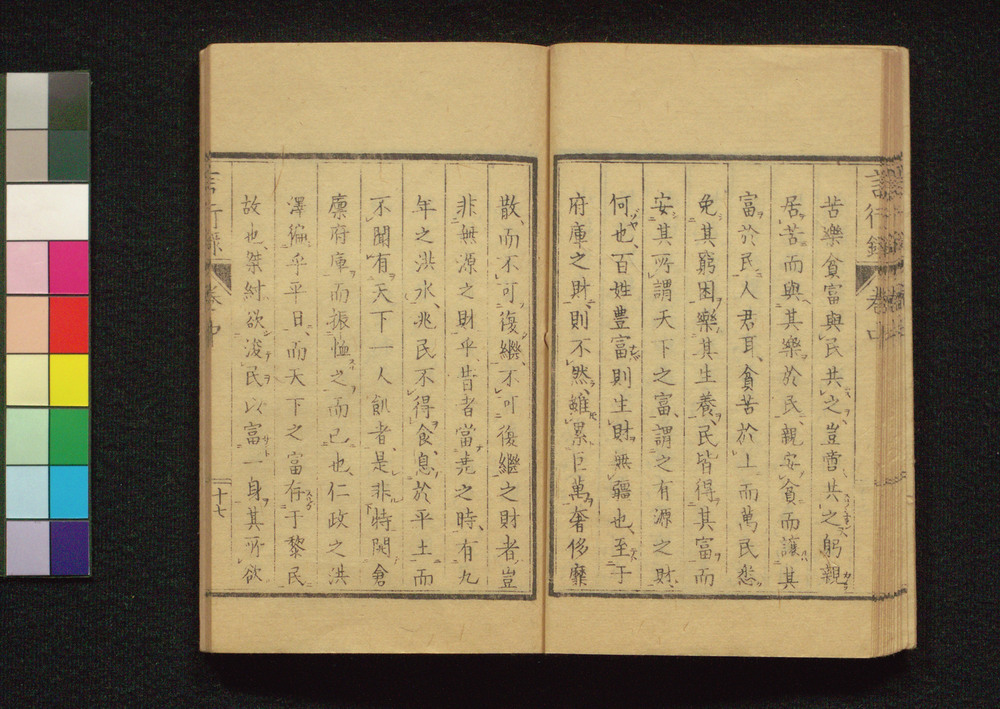 苦樂貧富與民共之豈啻共之躬親
居苦而與其樂於民親安貧而讓其
富於民人君耳貧苦於上而萬民悉
免其窮困樂其生養民皆得其富而
安其所謂天下之富謂之有源之財
何也百姓豊富則生財無疆也至于
府庫之財則不然雖累巨萬奢侈靡
散而不可復繼不可復繼之財者豈
非無源之財乎昔者當堯之時有九
年之洪水兆民不得食息於平土而
不聞有天下一人飢者是非特開倉
廩府庫而振恤之而已也仁政之洪
澤徧乎平日而天下之富存于黎民
故也桀紂欲浚民以富一身其所欲
言行錄 卷中 十七